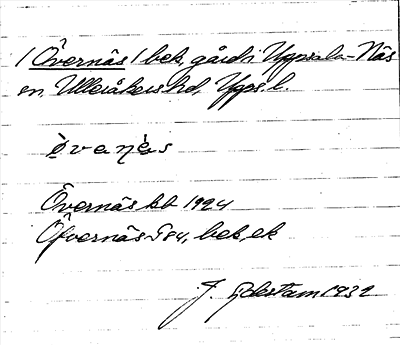 /Övernäs/ bek, gård i Uppsala-Näs
sn, Ulleråkers hd, Upps. l.
Övernäs kb 1924
Öfvernäs G84, bek, ek
J. 1932